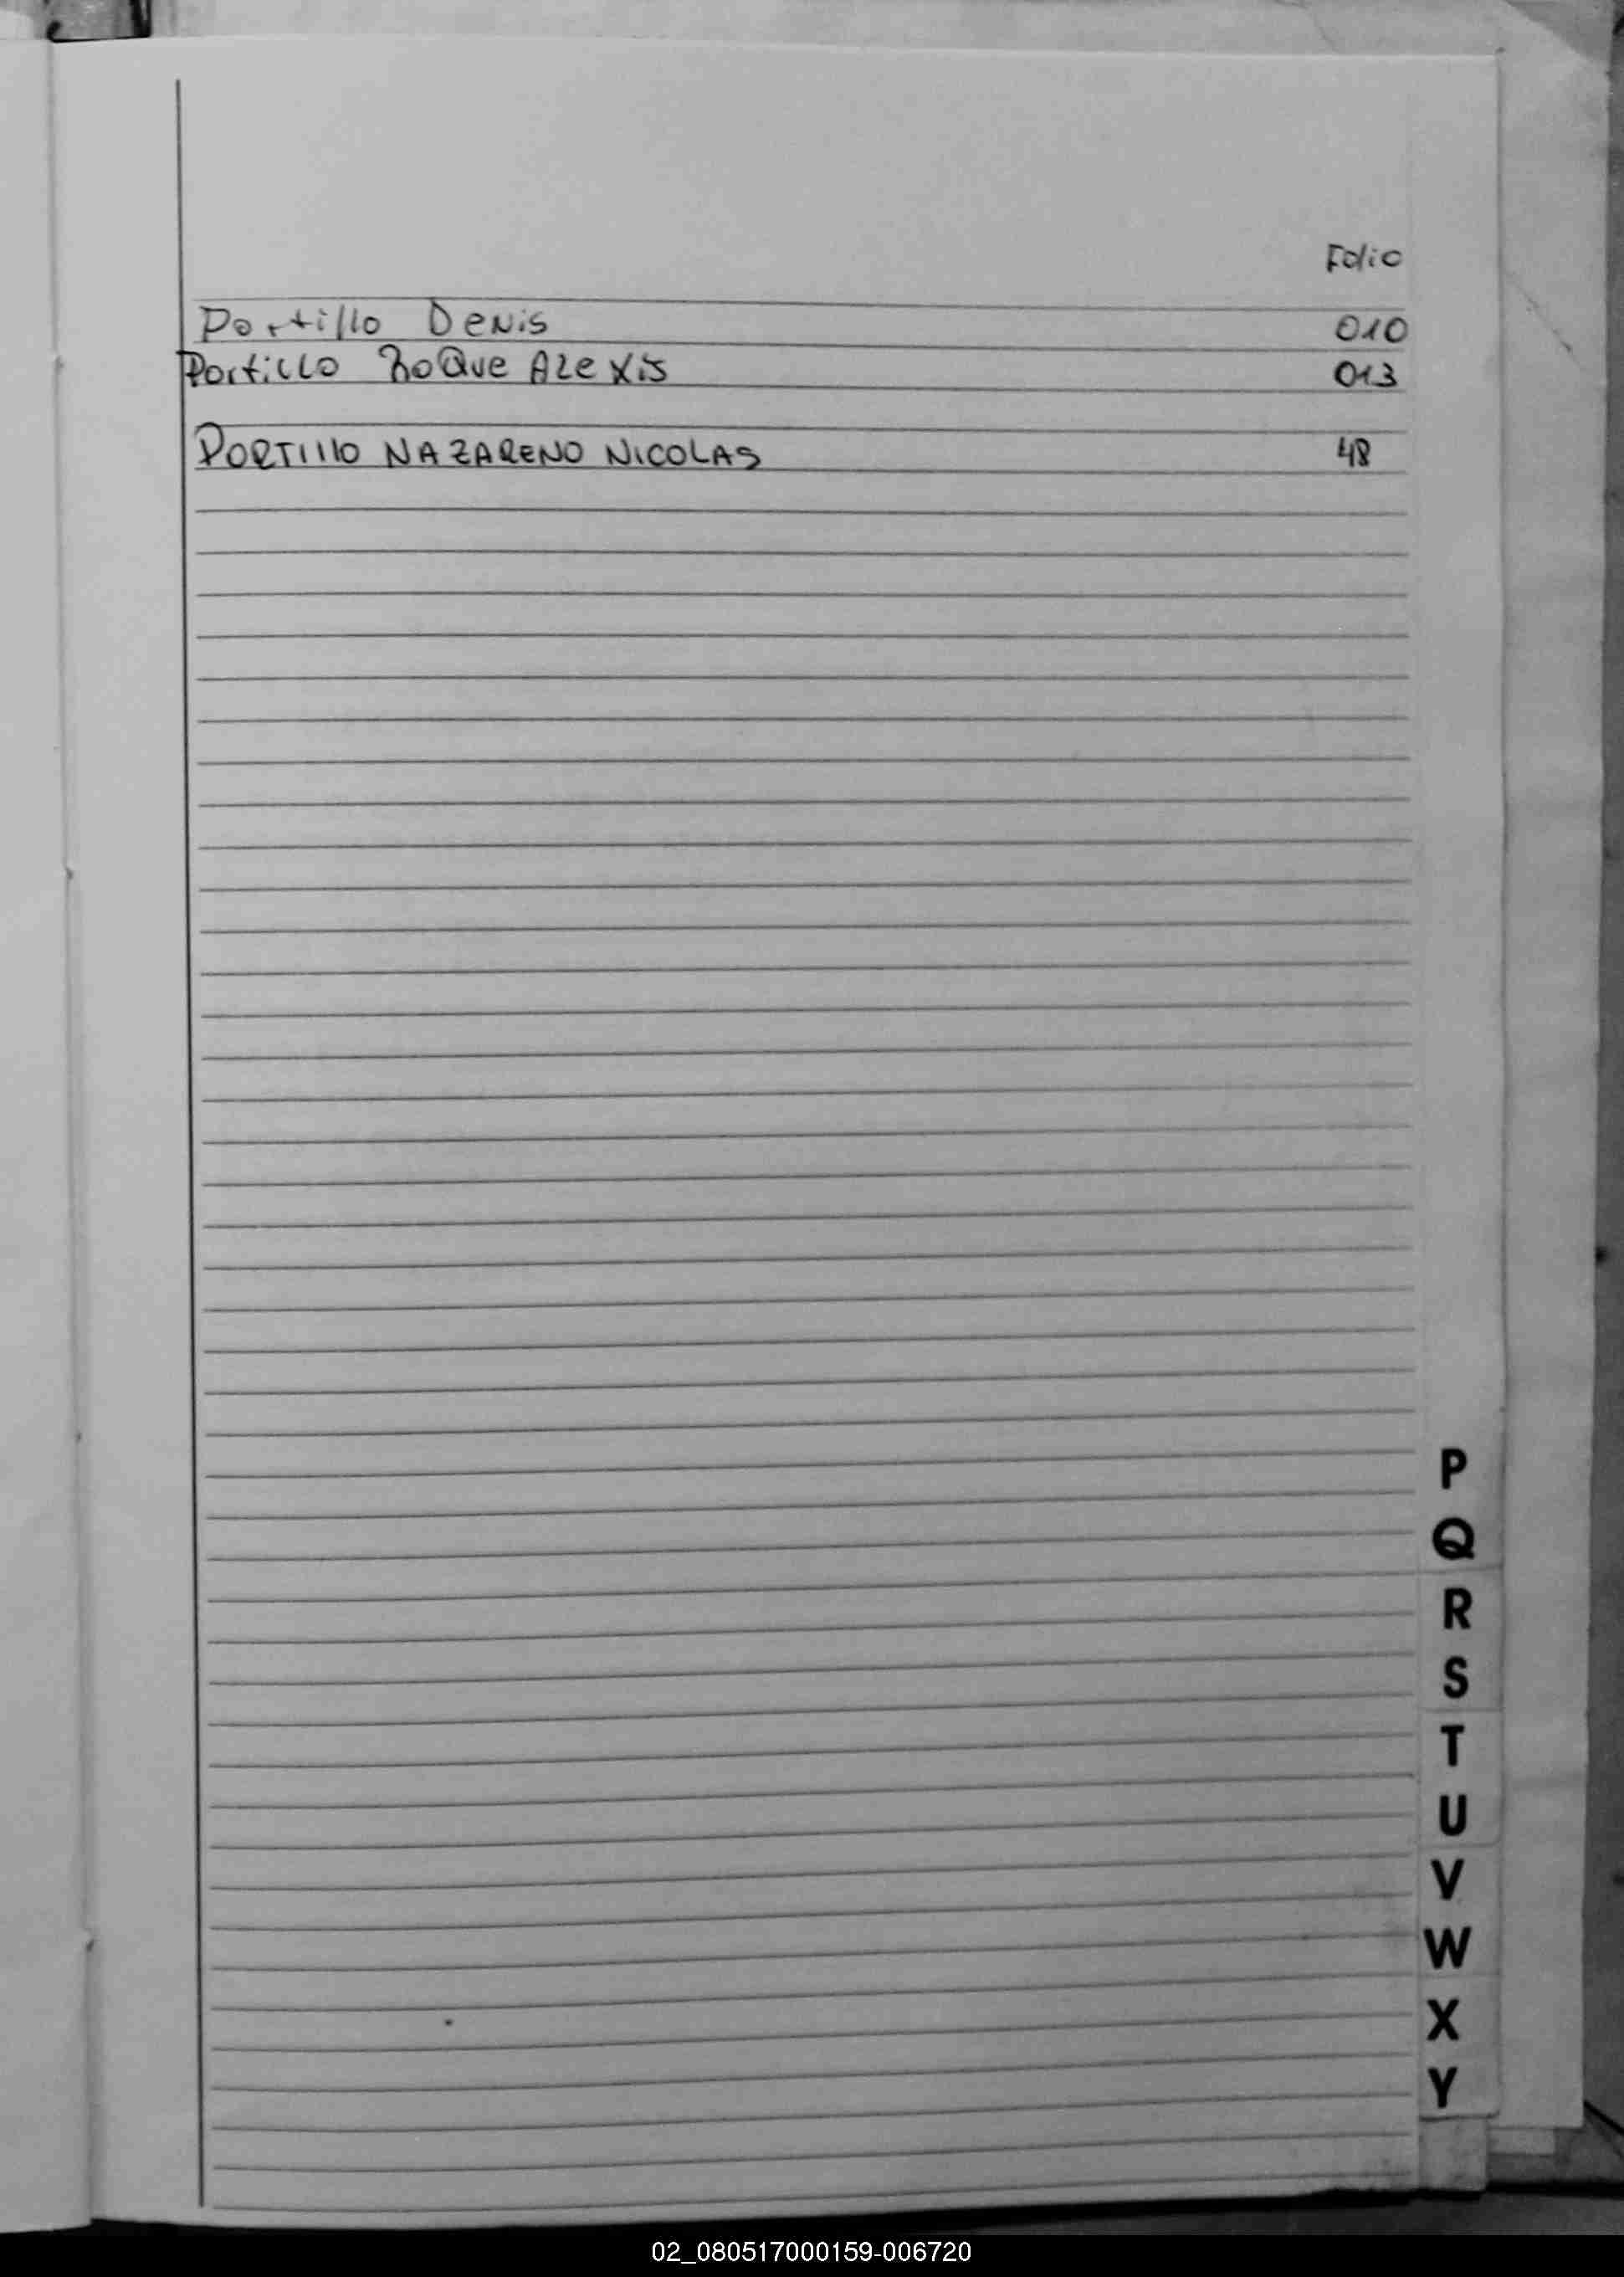 Folio
Portillo Denis 010
Portillo Roque Alexis 013
PORTIllO NAZARENO NICOLAS 48
P
Q
R
S
T
U
V
W
X
Y
02_080517000159-006720